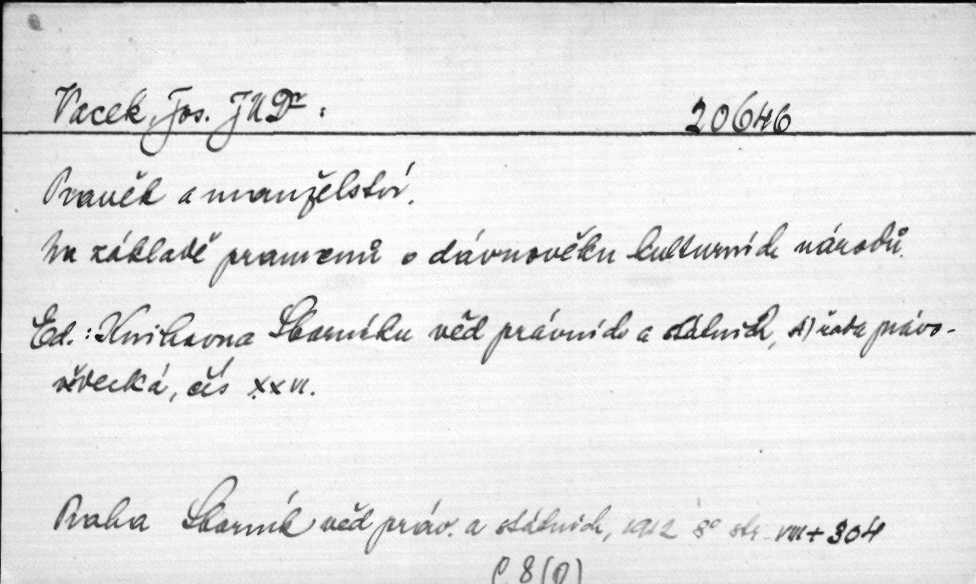 Vacek, Jos. JUDr: 20646
Pravěk a manželství.
Na základě pramenů o dávnověku kulturních národů.
Ed.: Knihovna Sborníku věd právních a státních, A) řada právo-
vědecká, čís XXVI.
Praha Sborník věd práv. a státních, 1912 8° str. VIII + 304
C 8 (0)